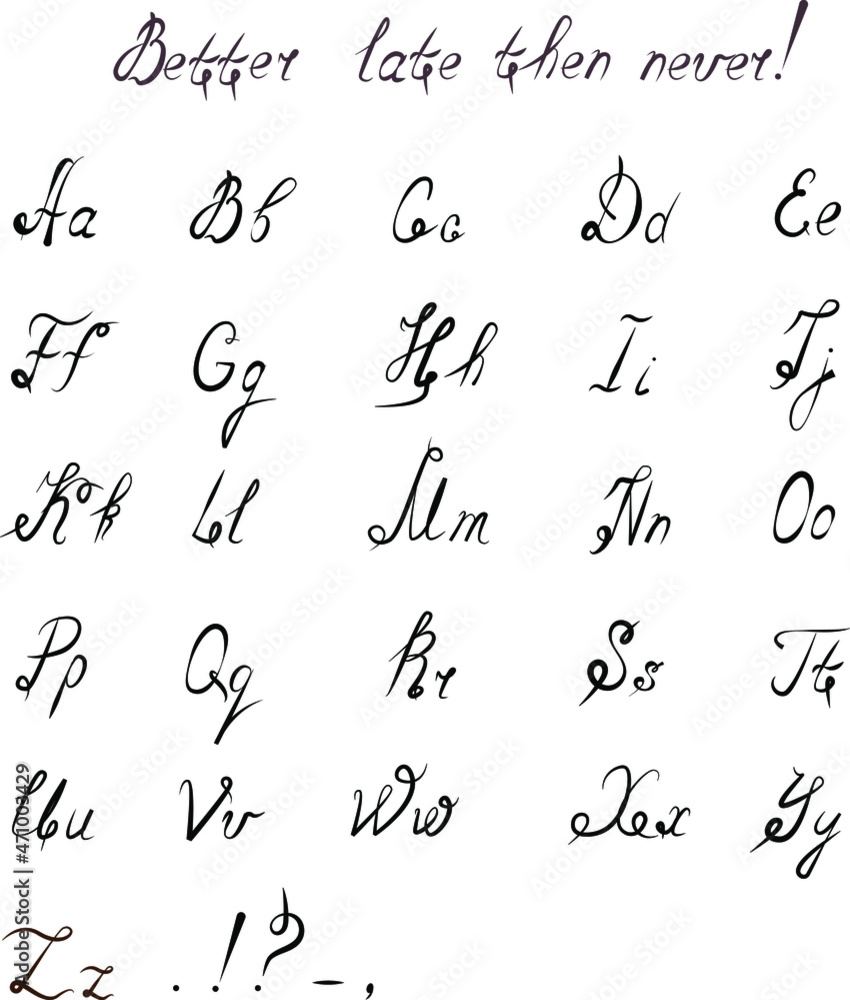 Better late then never!
Aa Bb Cc Dd Ee
Ff Gg Hh Ii Jj
Kk Ll Mm Nn Oo
Pp Qq Rr Ss Tt
Uu Vv Ww Xx Yy
Zz . ! ? - ,
Adobe Stock | #471003429